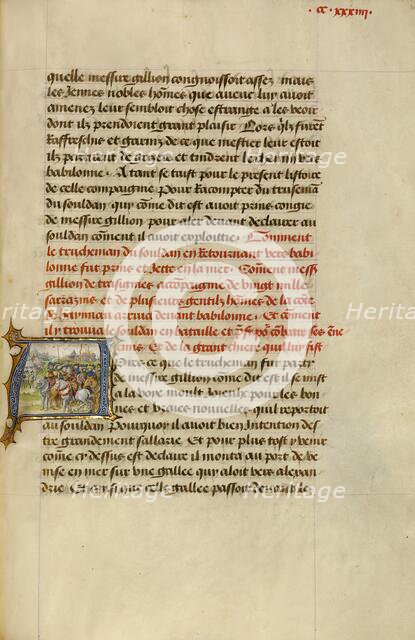 cc xxxiiii
quelle messire gillion congnoissoit assez mais
les Jennes nobles hommes que avenc luy avoit
amenez leur sembloit chose estrange a les veoir
dont ilz prendoient grant plaisir Lors quilz furent
Raffreschis et garnis de ce que mestier leur estoit
ilz partirent de et tindrent le chemin vers
babilonne. A tant se taist pour le present listoire
de celle compaignie Pour Racompter du truseman
du souldan quy come dit est avoit prins congie
de messire gillion pour aler devant declairer au
souldan coment il avoit exploittie. Comment
le trucheman du souldan en Retournant vers babi
lonne fut prins et jette en la mer. Coment messe
gillion de trasignies acompaignie de vingt mille
sarrazins et de plusieurs gentilz homes de la cort
arriva devant babilonne. Et coment
il y trouva le souldan en bataille et combatre ses ene
Et de la grant chiere quil luy fist
Dire que le trucheman fut party
de messire gillion come dit est il se mist
a la voye moult Joyeulx pour les bon
nes et vrayes nouvelles quil reportoit
au souldan Pourquoy il avoit bien Intention des
tre grandement sallarie. Et pour plus tost y venir
come cy dessus est declaire il monta au port de ve
nise en mer sur une gallee quy aloit vers alexan
drie. Et ainsi que celle gallee passoit devant le
Heritage Images
Heritage Images
Heritage Images
Heritage Images
Heritage Images